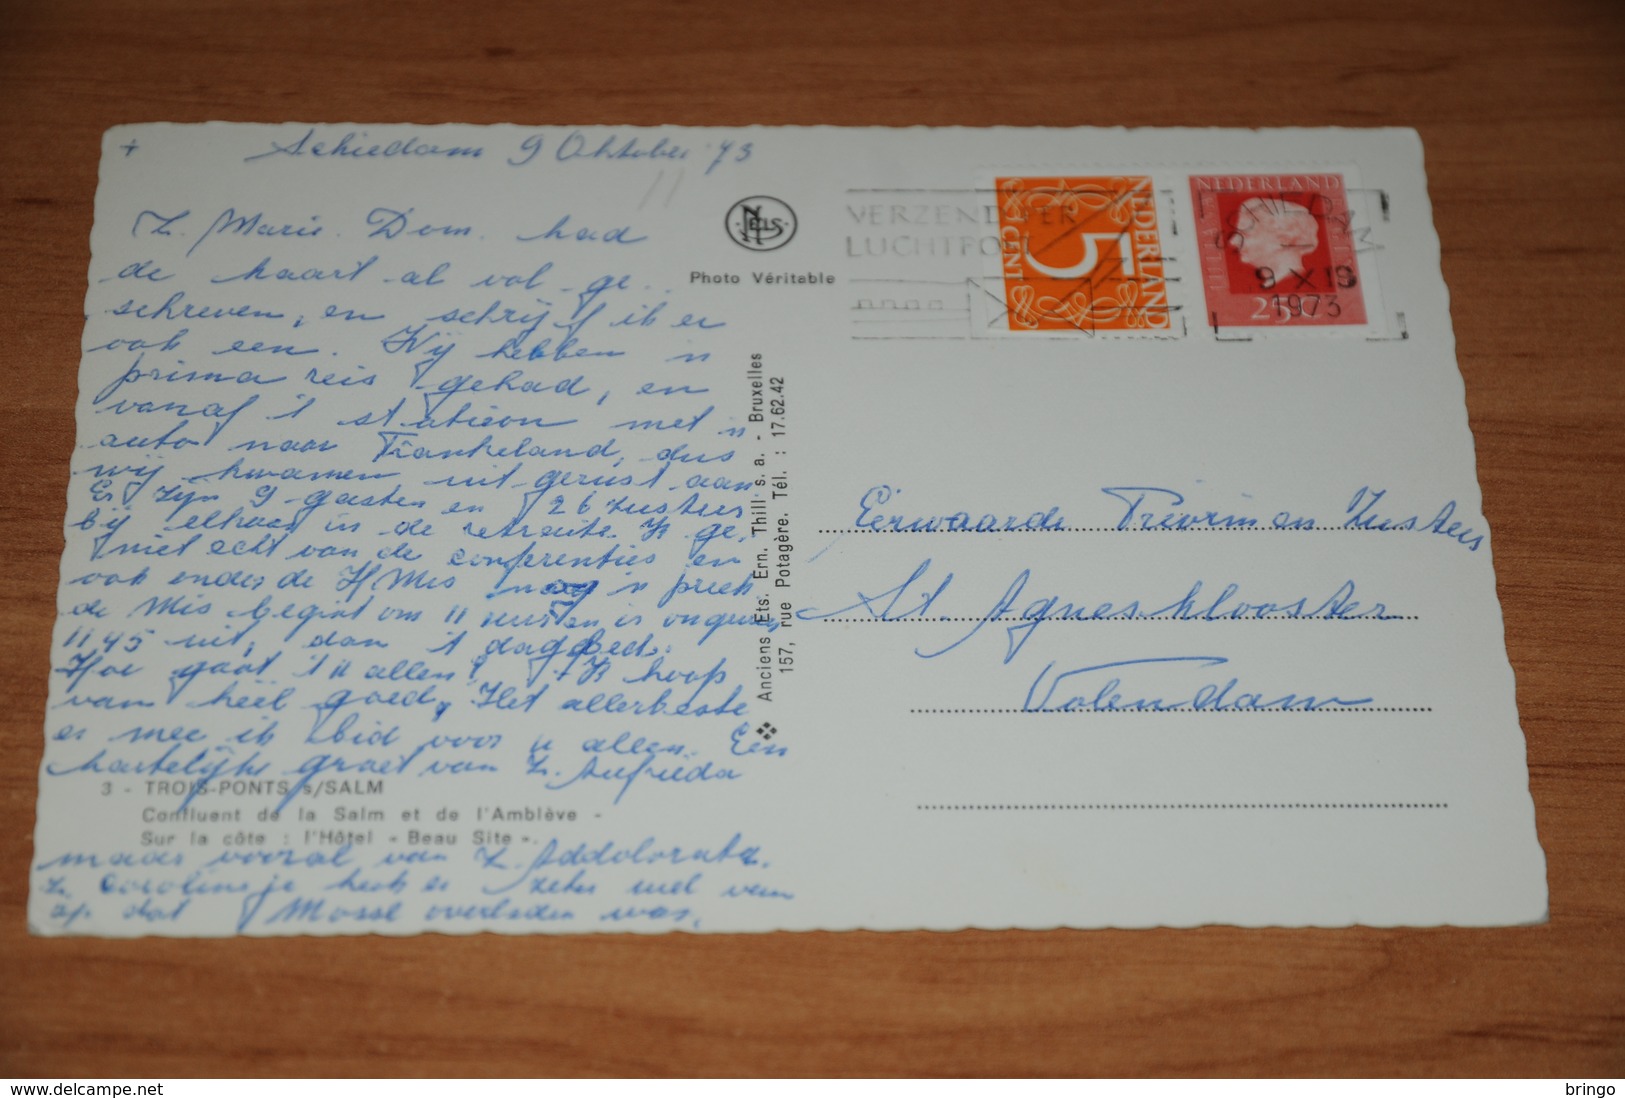 + Schiedam 9 Oktober '73
Z. Marie. Dom. had
de kaart al vol ge..
schreven, en schrijf ik er
ook een. Wij hebben 'n
prima reis gehad, en
vanaf 't station met 'n
auto naar Frankeland, dus
wij kwamen uitgerust aan
Er zijn 9 gasten en 26 zusters
bij elkaar in de retraite. Ik ge,
niet echt van de conferenties en
ook onder de H Mis nog 'n preek
de Mis begint om 11 uur en is ongeveer
11 45 uit, dan 't dag
Hoe gaat 't u allen? Ik hoop
van heel goed, Het allerbeste
er mee ik bid voor u allen. Een
hartelijke groet van Z. Aufrieda
maar vooral van Z. Addolorata.
Z. Carolientje heeft er zeker wel veen
op dat Mosse overleden was.
NELS
Photo Véritable
Anciens Ets. Ern. Thill s. a. - Bruxelles
157, rue Potagère. Tél. : 17.62.42
3 - TROIS-PONTS s/SALM
Confluent de la Salm et de l'Amblève -
Sur la côte : l'Hôtel « Beau Site ».
VERZEND PER
LUCHTPOST
NEDERLAND
5
CENT
NEDERLAND
25
SCHIEDAM
9 X 19
1973
Eerwaarde Priorin en Zusters
St. Agnesklooster
Volendam
www.delcampe.net
bringo